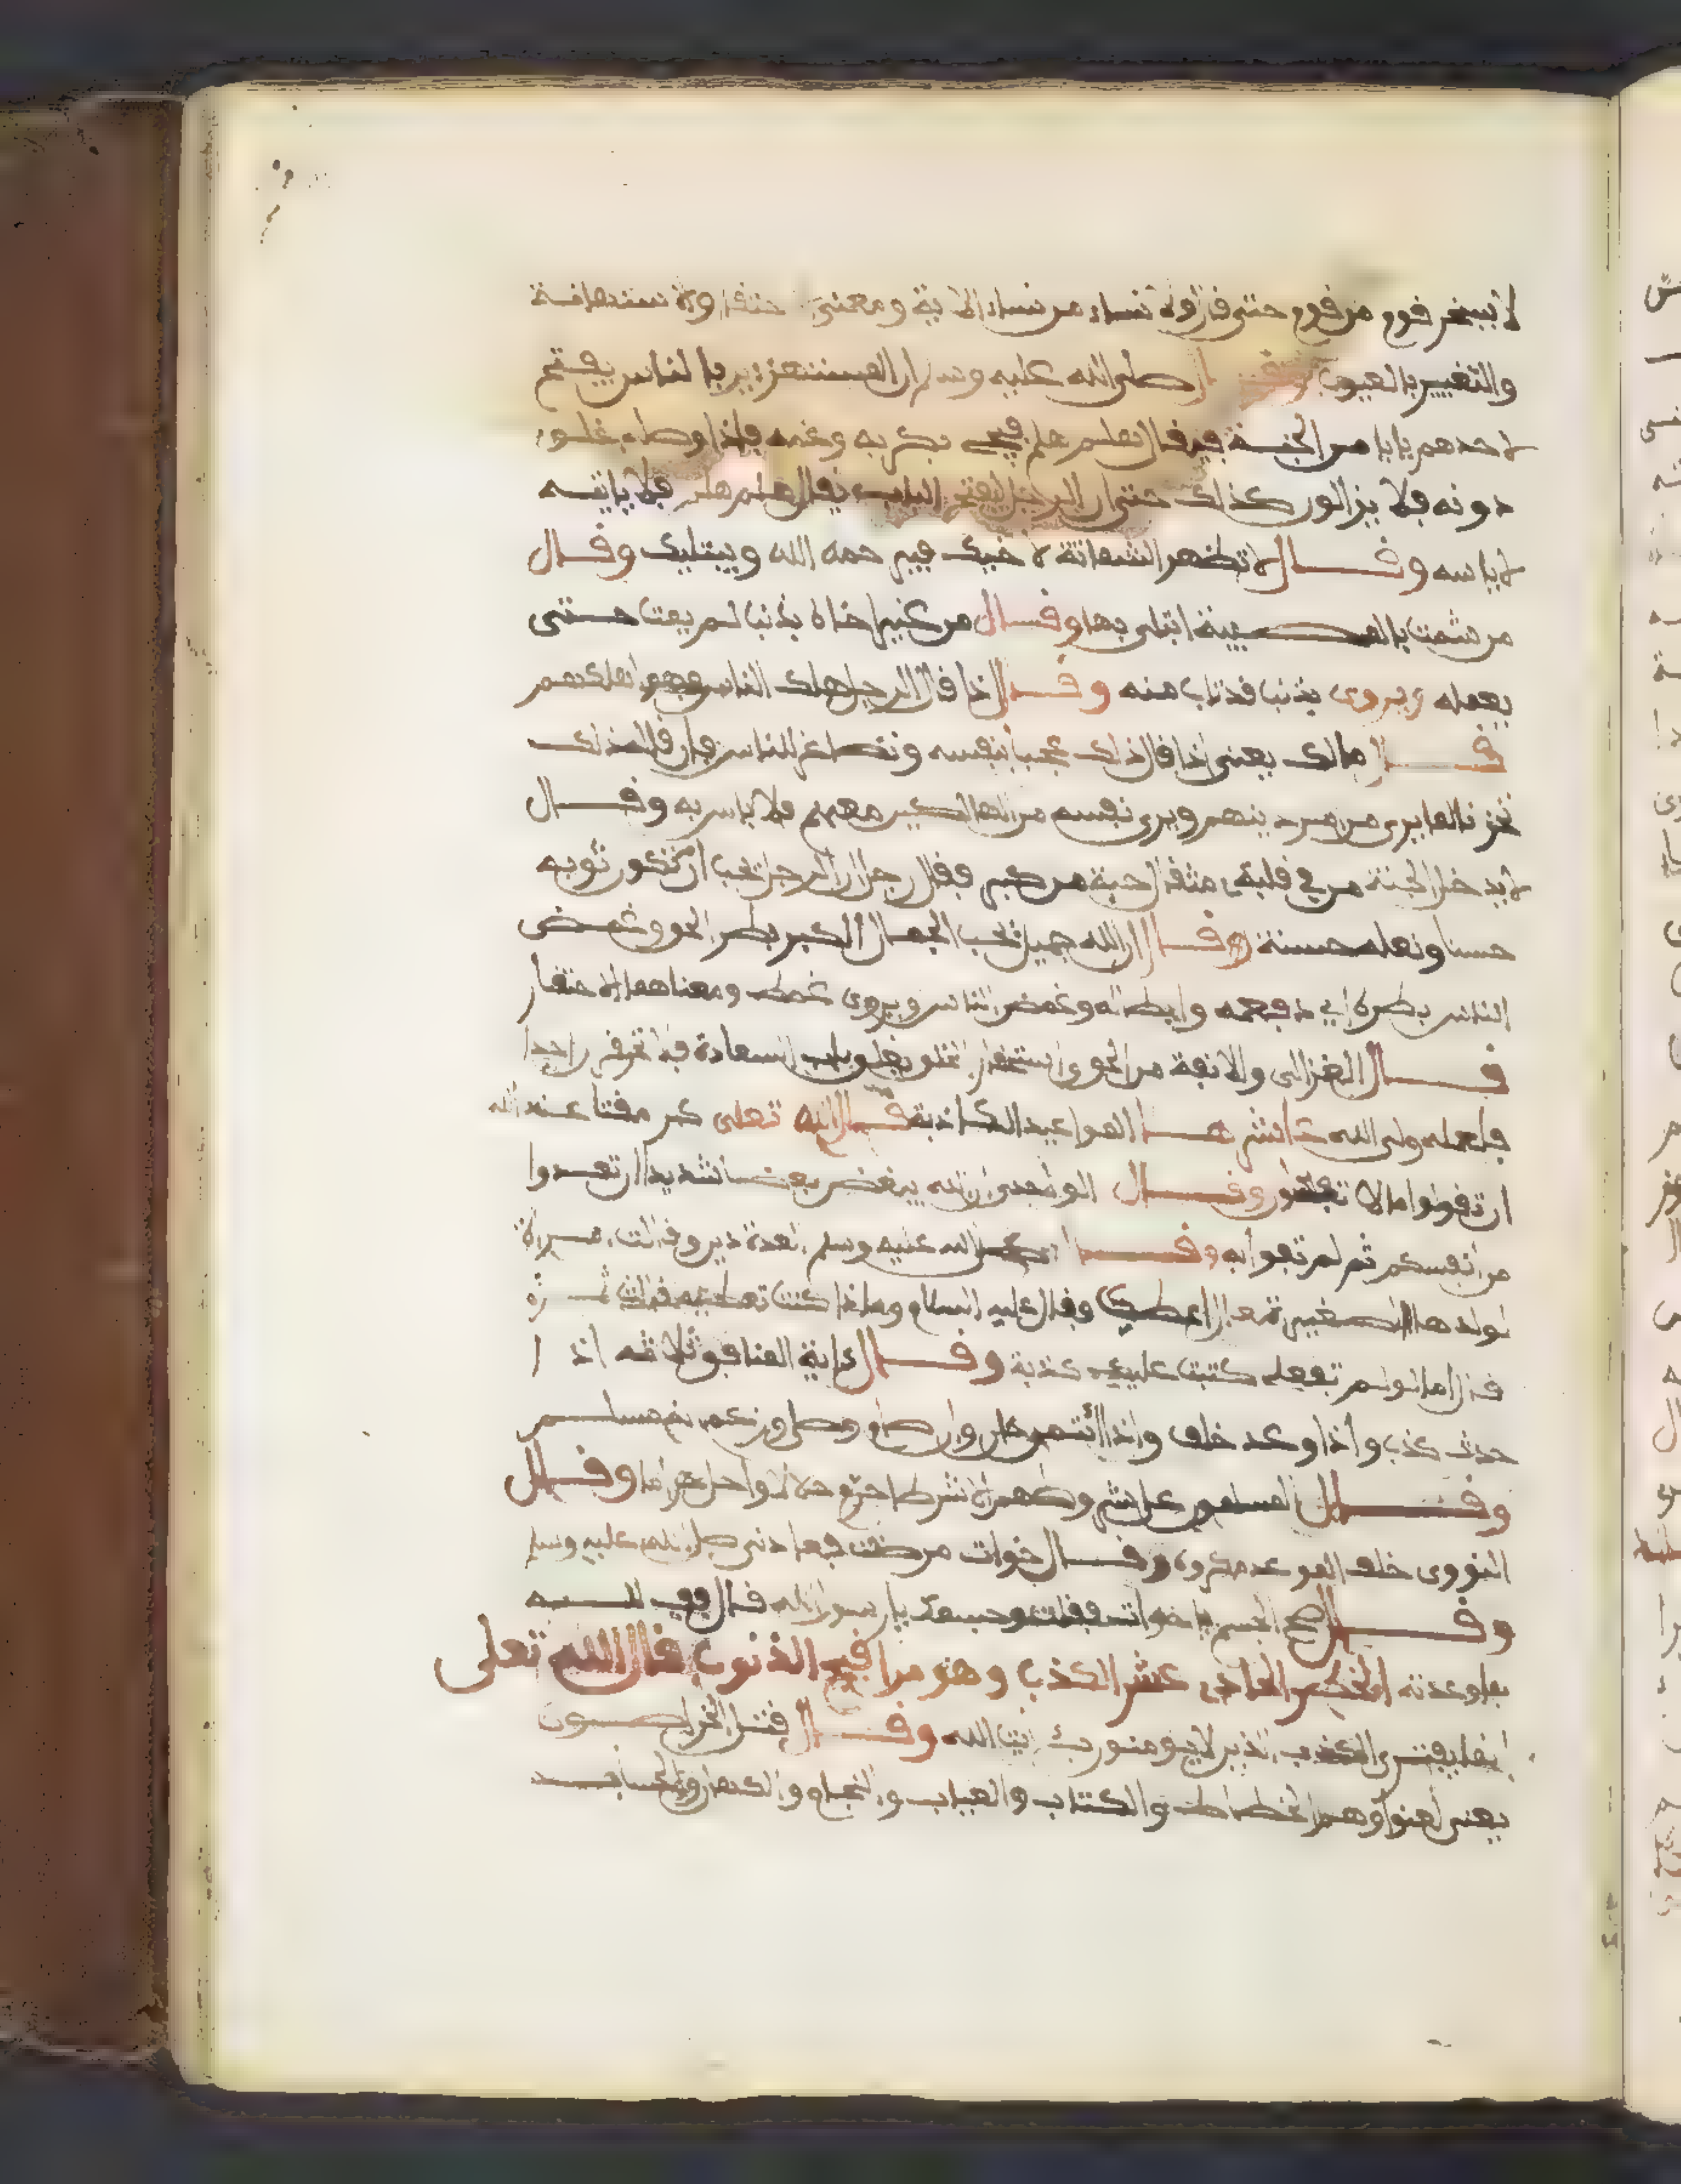 لا يسخر قوم من قوم حتى قال ولا نساء من نساء الاية ومعنى احتقار والاستهانة
والتعيير بالعيوب وقال صلى الله عليه وسلم ان المستهزءين بالناس يفتح
لاحدهم بابا من الجنة فيقال هلم هلم فيجيء بكربه وغمه فاذا وصله غلق
دونه فلا يزالون كذلك حتى ان الرجل ليفتح الباب يقال هلم هلم فلا ياتيه
لاياسه وقال لا تظهر الشماتة لاخيك فيرحمه الله ويبتليك وقال
من شمت بالمصيبة ابتلى بها وقال من عير اخاه بذنب لم يمت حتى
يعمله ويروى بذنب قد تاب منه وقال اذا قال الرجل هلك الناس فهو اهلكهم
قال مالك يعنى اذا قال ذلك عجبا بنفسه وتصاغر للناس فان قال ذلك
تحزنا لما يرى من دينهم ويرى نفسه من الهالكين معهم فلا باس به وقال
لا يدخل الجنة من في قلبه مثقال حبة من كبر فقال رجل ان الرجل يحب ان تكون ثوبه
حسنا ونعله حسنة قال ان الله جميل يحب الجمال الكبر بطر الحق وغمض
الناس بطره اي دفعه وابطاله وغمض الناس ويروى غمط ومعناهما الاحتقار
قال الغزالى والانفة من الحق واستحقار الخلق يغلق باب السعادة فلا تحقر احدا
فلعله ولى الله عاشرها المواعيد الكاذبة قال الله تعلى كبر مقتا عند الله
ان تقولوا ما لا تفعلون وقال الواحدى ان الله يبغض بغضا شديدا ان تعدوا
من انفسكم ثم لم تفوا به وقال صلى الله عليه وسلم العدة دين وقالت امراة
لولدها الصغير تعال اعطيك وقال عليه السلام وماذا كنت تعطيه قالت تمرة
قال اما لو لم تفعلى كتبت عليك كذبة وقال ءاية المنافق ثلاثة اذا
حدث كذب واذا وعد خلف واذا ائتمن خان وان صام وصلى وزعم انه مسلم
وقال المسلمون على شروطهم الا شرطا حرم حلالا واحل حراما وقال
النووى خلف الوعد مكروه وقال خوات مرضت فعادنى صلى الله عليه وسلم
وقال صح الجسم يا خوات فقلت وجسمك يا رسول الله قال فف لله
بما وعدته الخصل الحادى عشر الكذب وهو من اقبح الذنوب قال الله تعلى
انما يفترى الكذب الذين لا يومنون بئايت الله وقال قتل الخراصون
يعنى لعنوا وهم الخطاط والكتاب والعياب والنجام والكهان والحساب